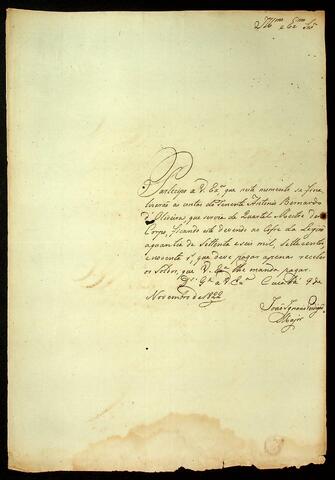 Illmo e Exmo Snr
Participo a V. Exa. que neste momento se fina
lizarão as contas do Tenente Antonio Bernardo
d'Oliveira, que servia de Quartel Mestre do
Corpo, ficando este devendo ao Cofre da Legião
a quantia de Settenta e seis mil, settecentos
e noventa rs, que deve pagar apenas receba
os Soldos, que V. Exa. lhe manda pagar.
Ds. Ge. a V. Exa. Cuiabá 9 de
Novembro de 1822
João Ignacio
Major